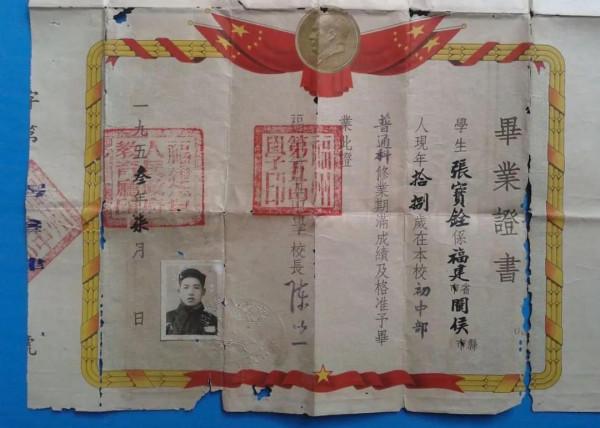 畢業證書
學生張寶銓係福建省閩侯縣市
人現年拾捌歲在本校初中部
普通科修業期滿成績及格准予畢
業此證
福州第五中學校長陈
福州第五中學印
一九五叁年柒月 日
字第
號